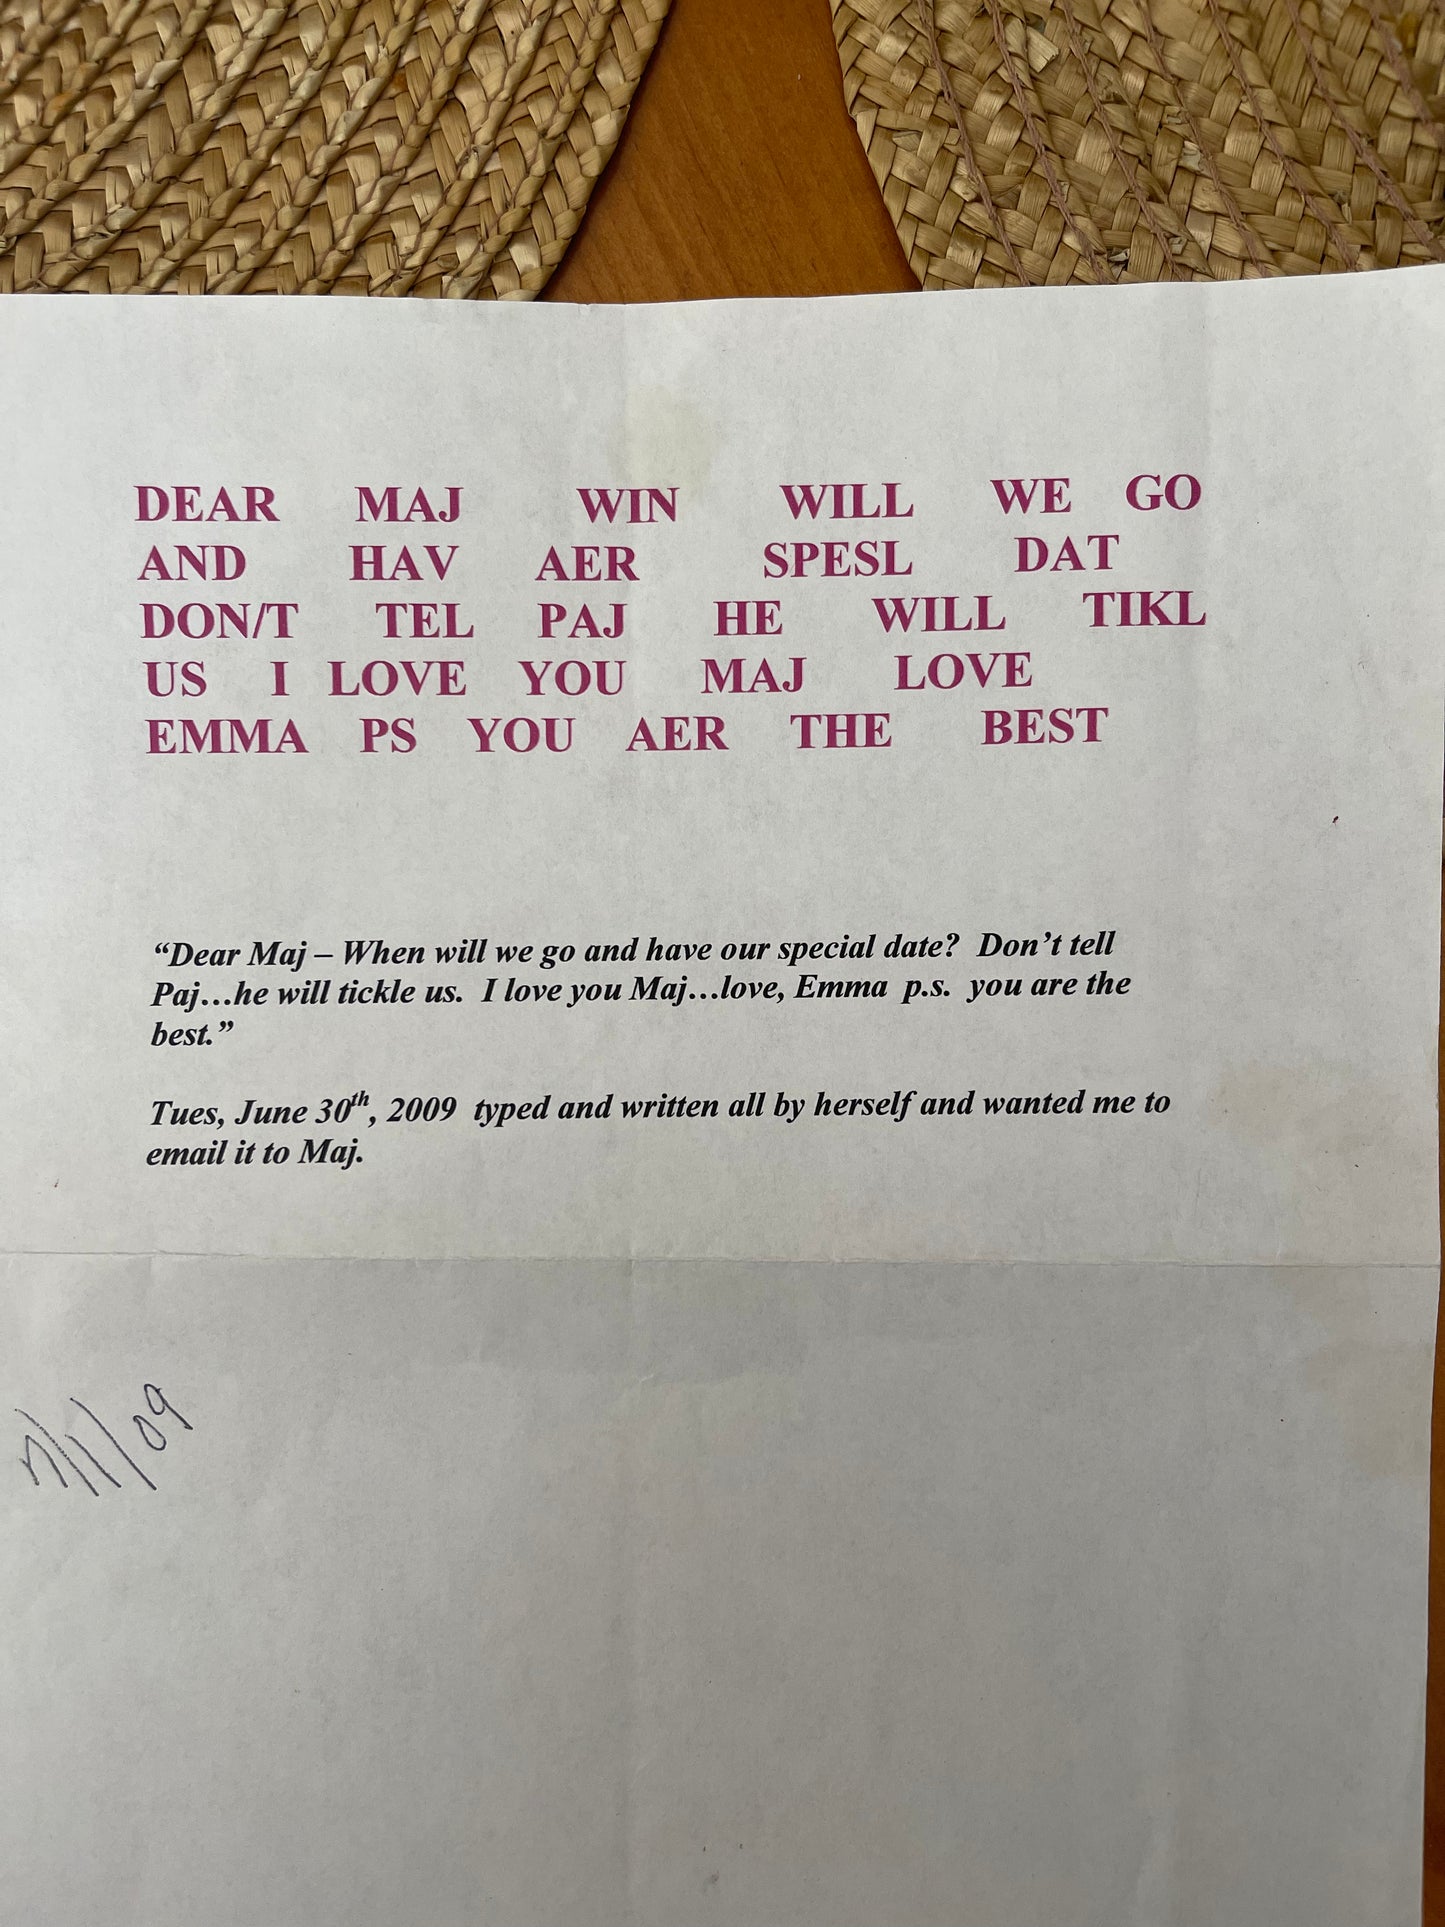 DEAR MAJ WIN WILL WE GO
AND HAV AER SPESL DAT
DON/T TEL PAJ HE WILL TIKL
US I LOVE YOU MAJ LOVE
EMMA PS YOU AER THE BEST
“Dear Maj – When will we go and have our special date? Don’t tell
Paj…he will tickle us. I love you Maj…love, Emma p.s. you are the
best.”
Tues, June 30th, 2009 typed and written all by herself and wanted me to
email it to Maj.
7/1/09